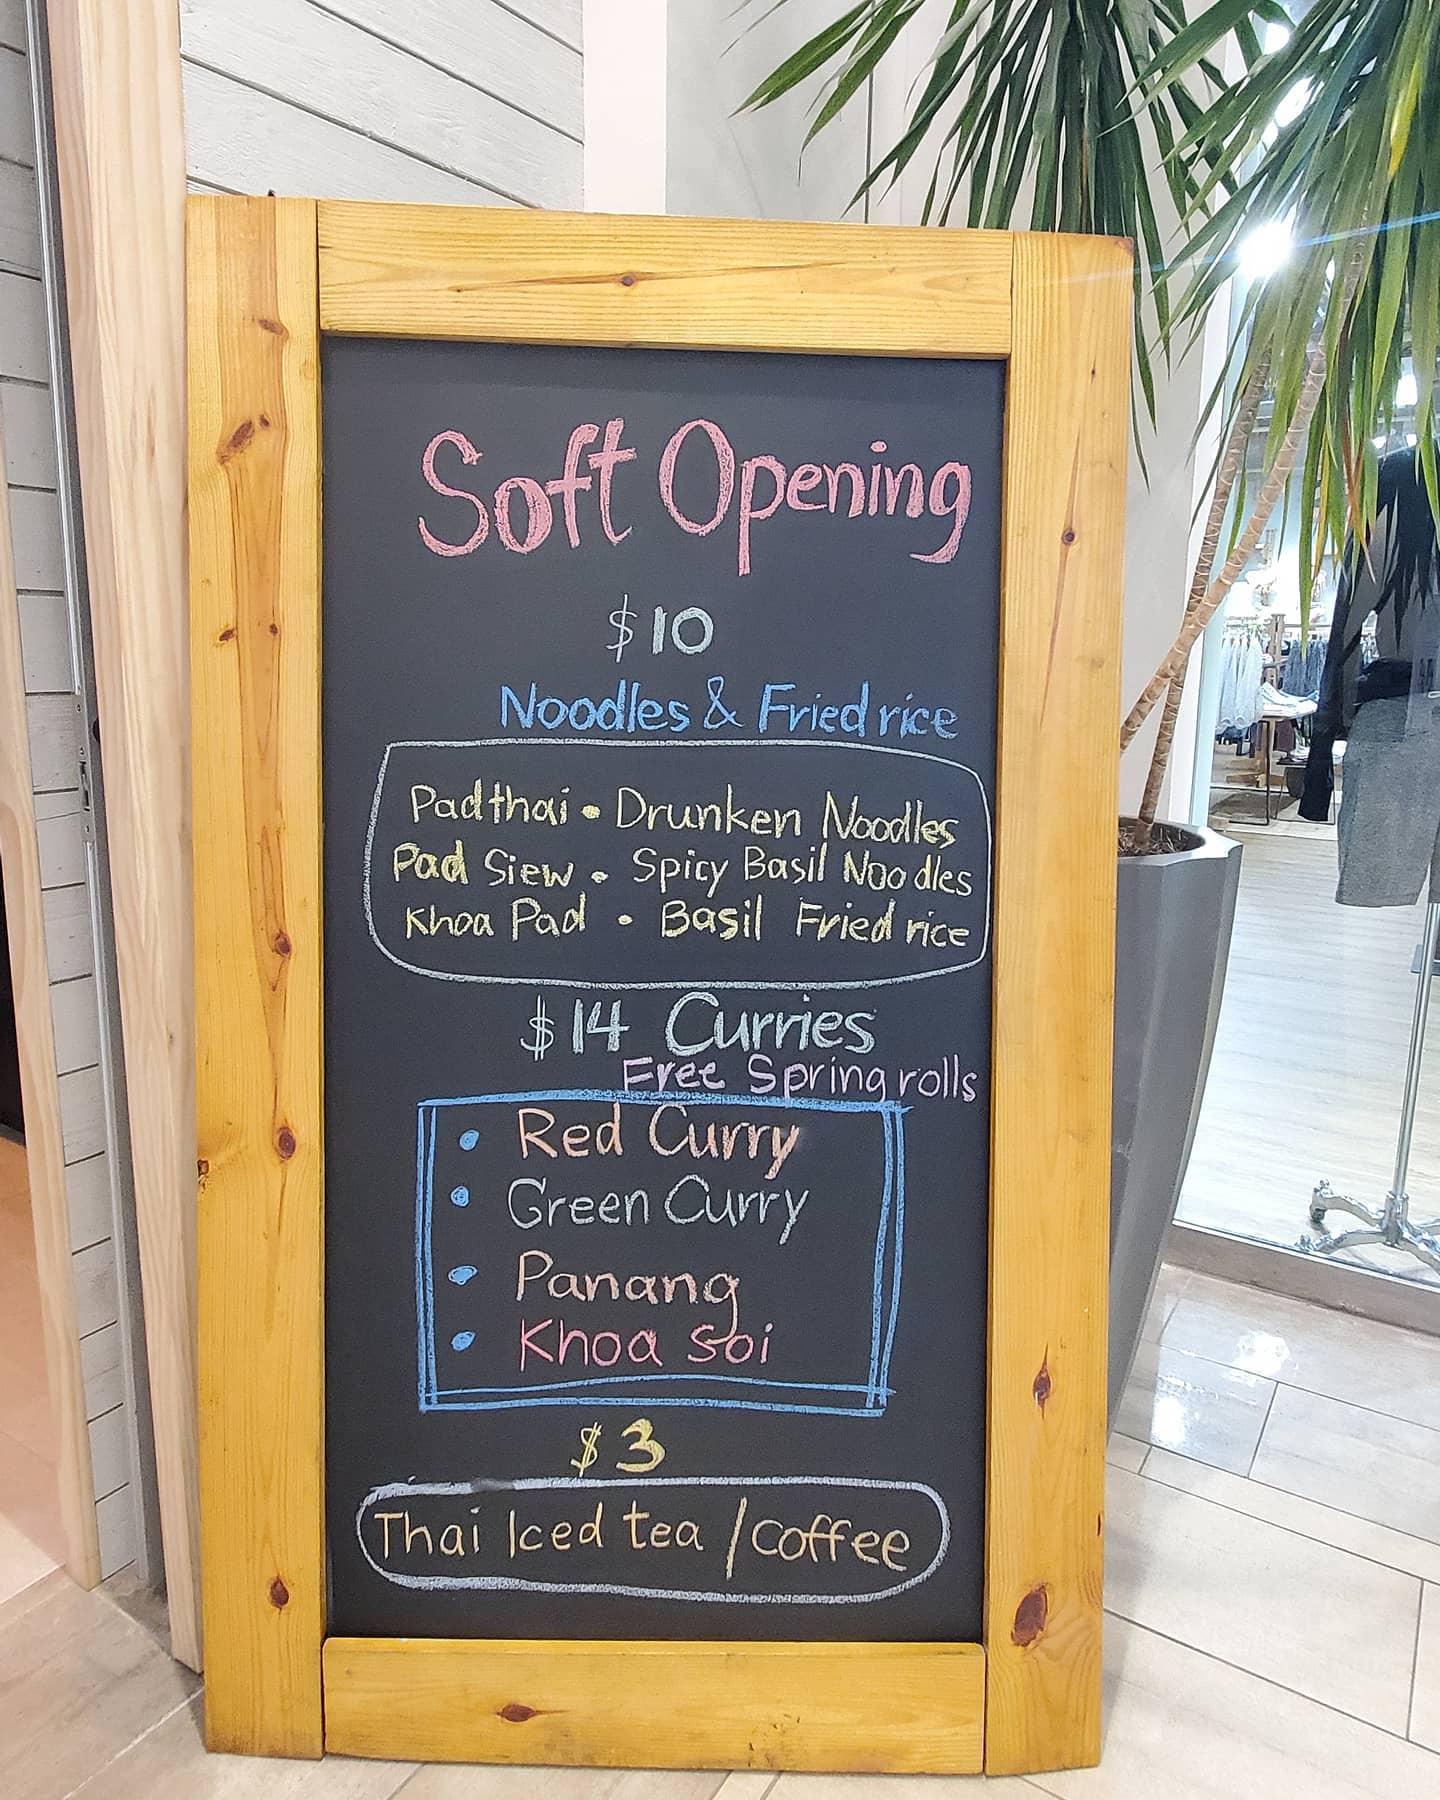 Soft Opening
$10
Noodles & Fried rice
Pad thai • Drunken Noodles
Pad Siew • Spicy Basil Noodles
Khoa Pad • Basil Fried rice
$14 Curries
Free Spring rolls
• Red Curry
• Green Curry
• Panang
• Khoa soi
$3
Thai Iced tea / coffee